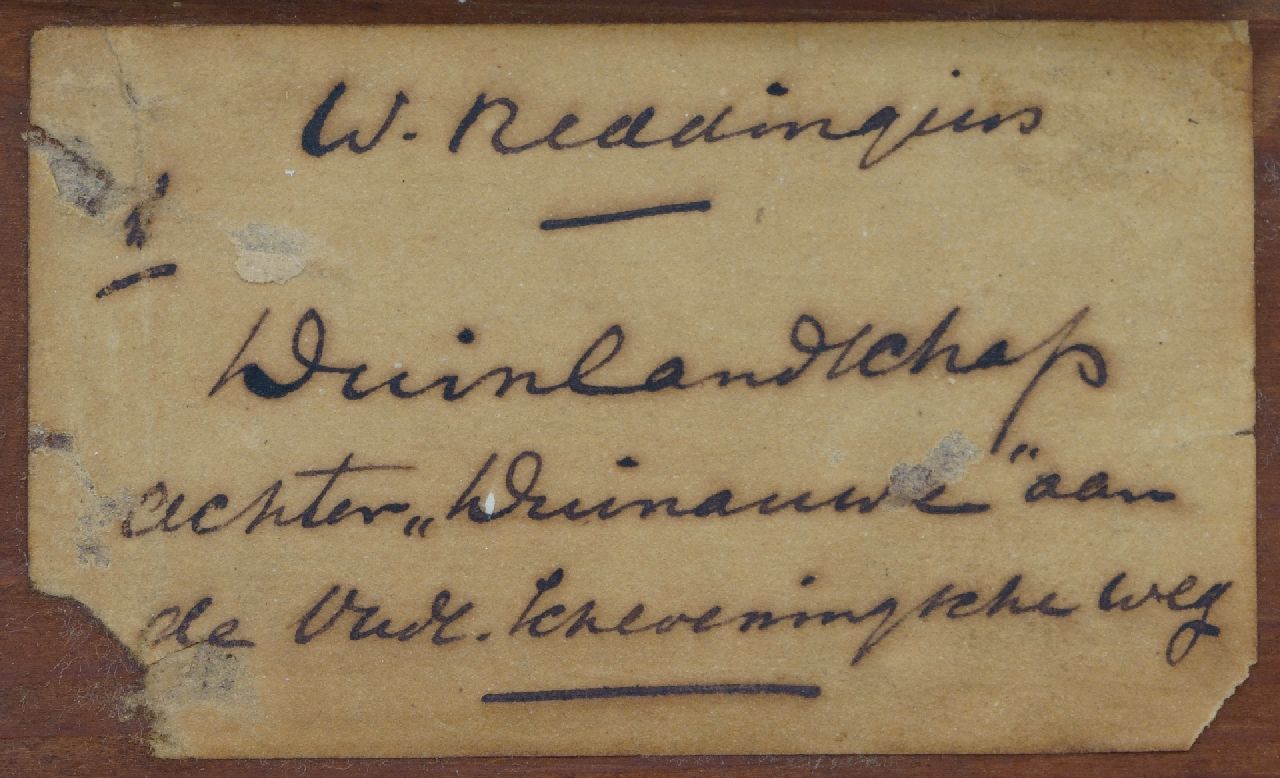 W. Reddingius
Duinlandschap
achter „Duinauwe” aan
de Oude. Scheveningsche weg